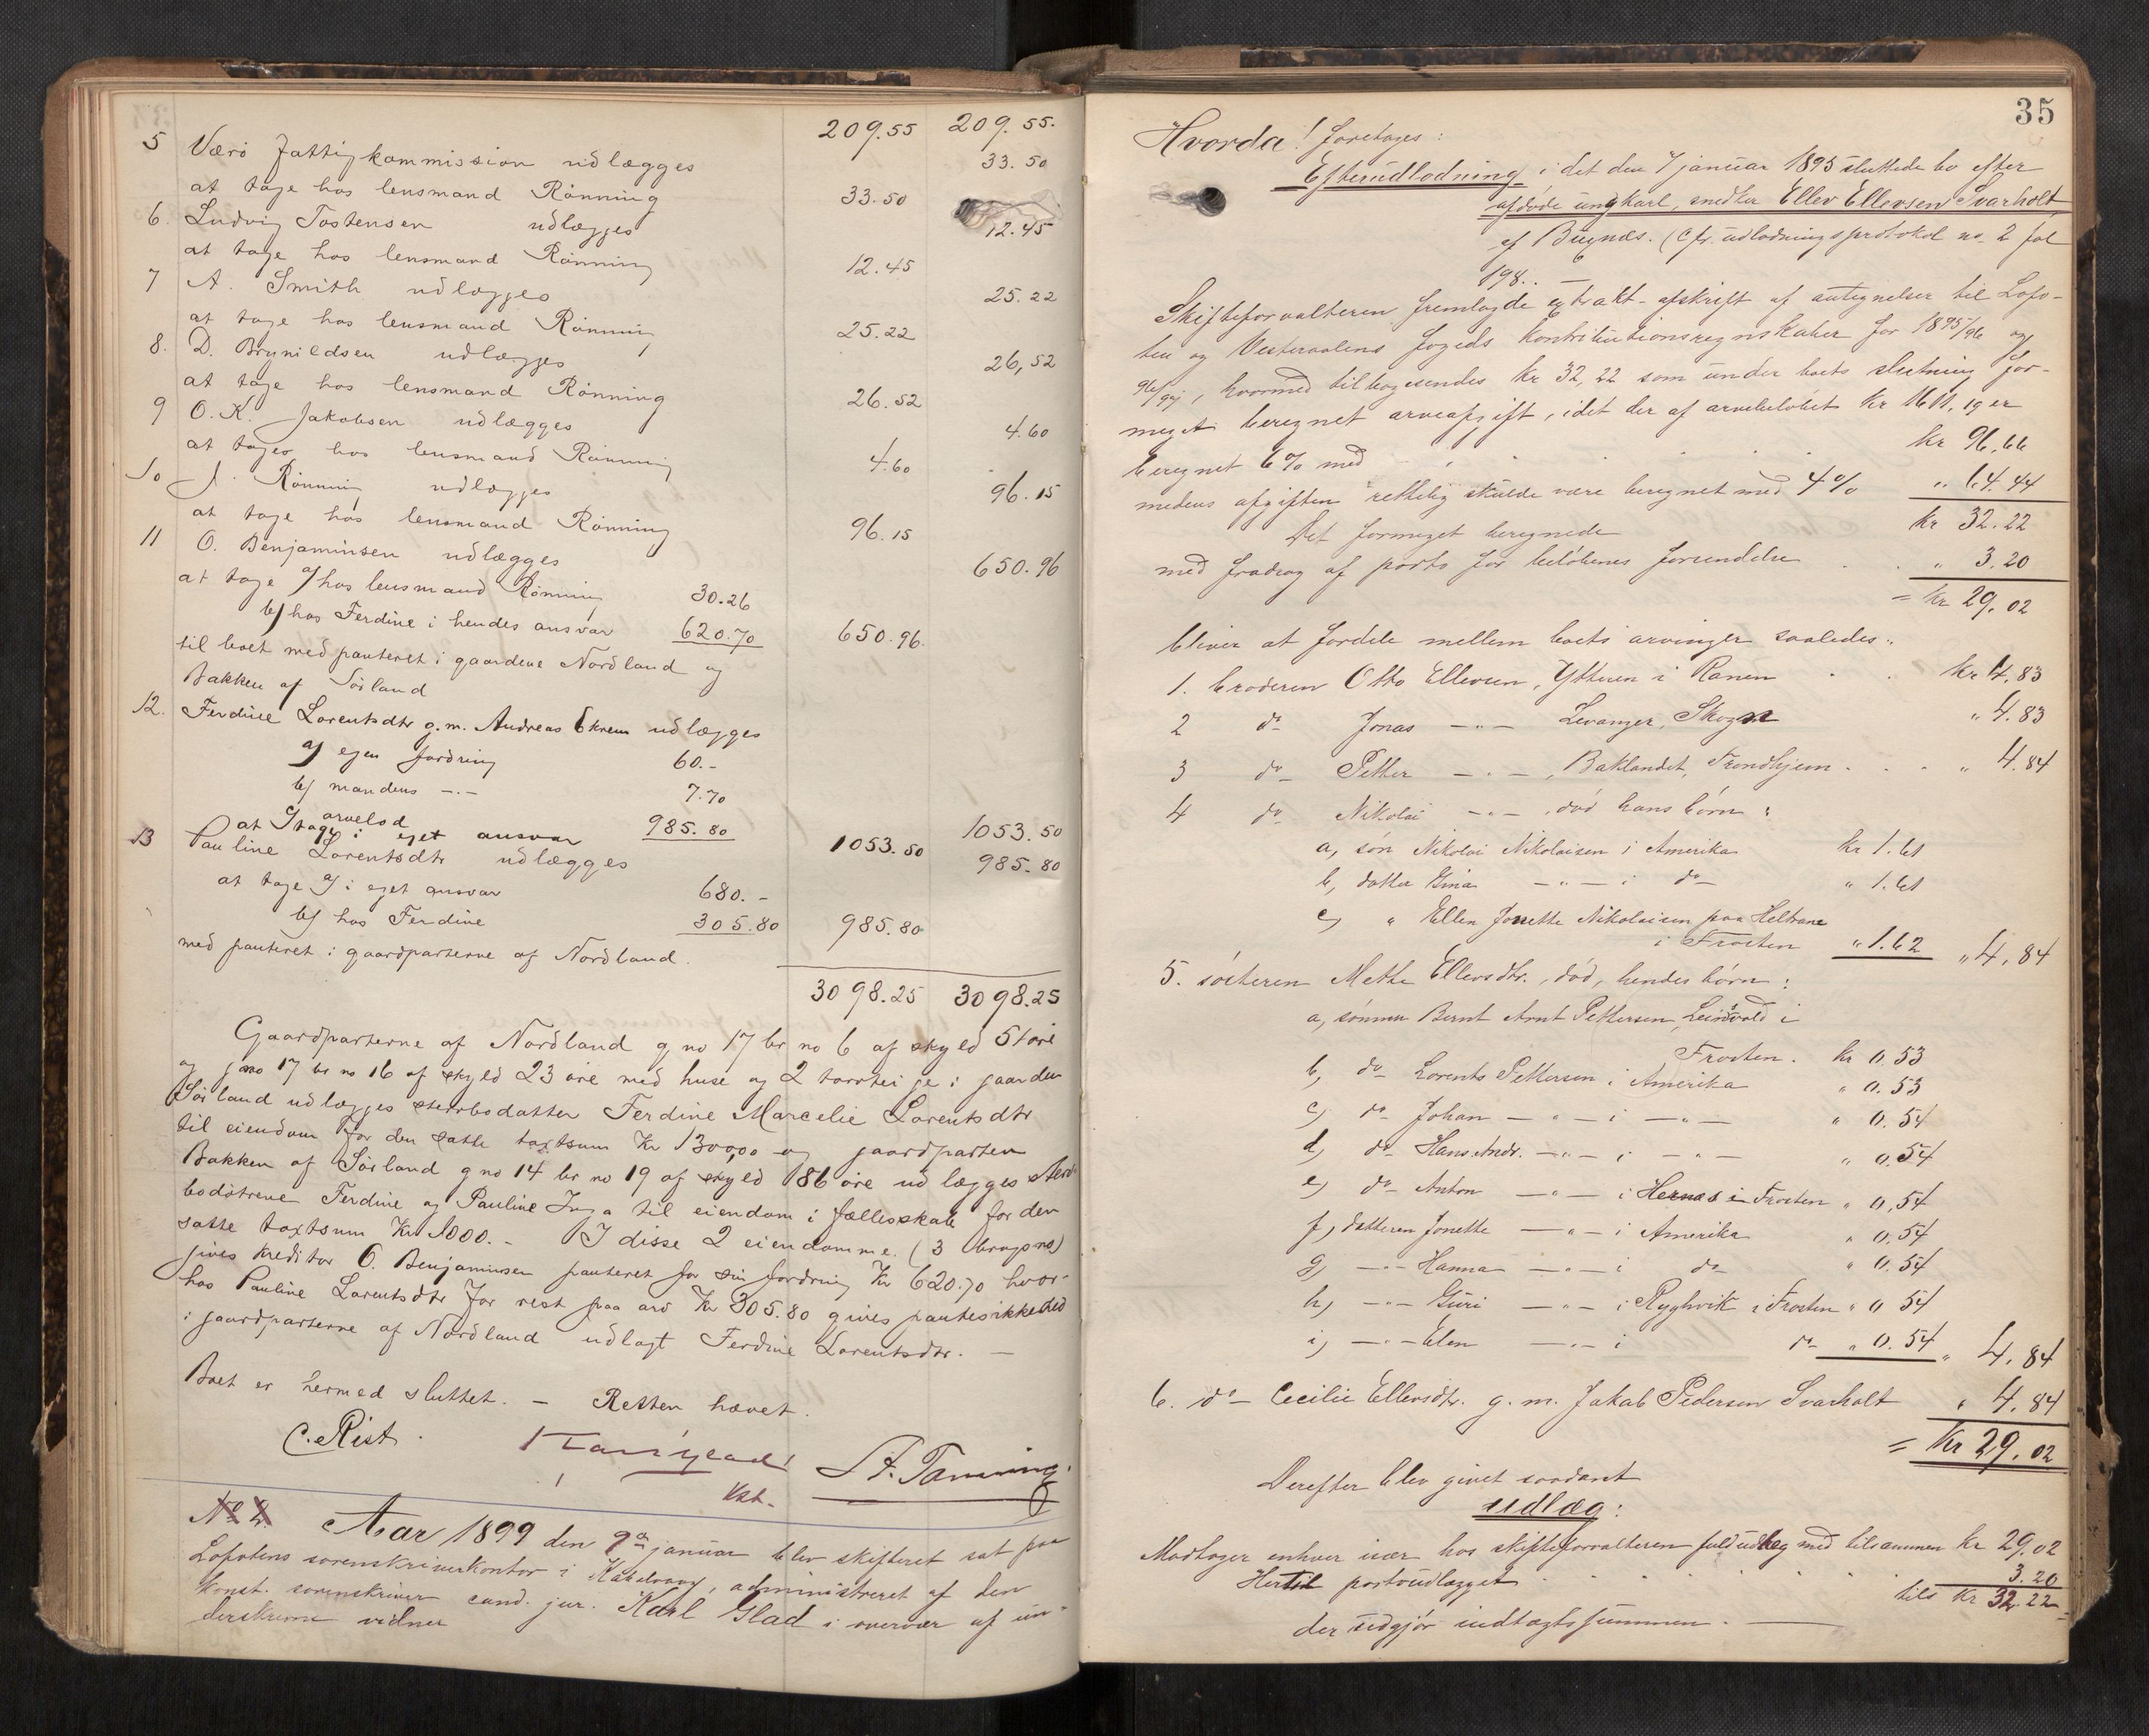 209.55 209.55.
5 Værö Fattigkommission udlægges 33.50
at tage hos lensmand Rönning 33.50
6. Ludvig Tostensen udlægges 12.45
at tage hos lensmand Rönning 12.45
7 A. Smith udlægges 25.22
at tage hos lensmand Rönning 25.22
8. D. Brynildsen udlægges 26,52
at tage hos lensmand Rönning 26.52
9 O. K. Jakobsen udlægges 4.60
at tages hos lensmand Rönning 4.60
10 J. Rönning udlægges 96.15
at tage hos lensmand Rönning 96.15
11 O. Benjaminsen udlægges 650.96
at tage a/ hos lensmand Rönning 30.26
b/ hos Ferdine i hendes ansvar 620.70 650.96.
til boet med panteret i gaardene Nordland og
Bakken af Sörland
12. Ferdine Lorentsdtr g.m. Andreas udlægges
a/ egen fordring 60.-
b/ mandens -.- 7.70
c/ arvelod 985.80 1053.50
at tage i eget ansvar 1053.50
13 Pauline Lorentsdtr udlægges 985.80
at tage a/ i eget ansvar 680.-
b/ hos Ferdine 305.80 985.80
med panteret i gaardparterne af Nordland.
3098.25 3098.25
Gaardparterne af Nordland g no 17 br no 6 af skyld 51 öre
og g no 17 br no 16 af skyld 23 öre med huse og 2 torvteige i gaarden
Sörland udlægges stervbodatter Ferdine Marcelie Lorentsdtr
til eiendom for den satte taxtsum Kr 1300,00 og gaardparten
Bakken af Sörland g no 14 br no 19 af skyld 86 öre udlægges sterv-
bodötrene Ferdine og Pauline Inga til eiendom i fællesskab for den
satte taxtsum Kr 1000.- I disse 2 eiendomme (3 brugsno)
gives kreditor O. Benjaminsen panteret for sin fordring Kr 620.70 hvor-
hos Pauline Lorentsdtr for rest paa arv Kr 305.80 gives pantesikkerhed
i gaardparterne af Nordland udlagt Ferdine Lorentsdtr. —
Boet er hermed sluttet. — Retten hævet.
C. Rist. Karl Glad
kst.
No 2. Aar 1899 den 9de januar blev skifteret sat paa
Lofotens sorenskriverkontor i Kabelvaag, administreret af den
konst. sorenskriver cand. jur. Karl Glad i overvær af un-
derskrevne vidner
35
Hvorda! foretoges:
Efterudlodning i det den 7 januar 1895 sluttede bo efter
afdöde ungkarl, snedker Ellev Ellevsen Svarholt
af Buknes. (cfr. udlodningsprotokol no. 2 fol
198. . —
Skifteforvalteren fremlagde extrakt-afskrift af antegnelser til Lofo-
ten og Vesteraalens fogeds kontributionsregnskaber for 1895/96 og
96/97, hvormed tilbagesendes kr 32,22 som under boets slutning for-
meget beregnet arveafgift, idet der af arvebelöbet kr 1611,19 er
beregnet 6% med kr 96,66
medens afgiften rettelig skulde være beregnet med 4% " 64.44
Det formeget beregnede kr 32.22
med fradrag af porto for belöbenes forsendelse " 3.20
= kr 29.02
bliver at fordele mellem boets arvinger saaledes:
1. broderen Otto Ellevsen, Ytteren i Ranen kr 4,83
2 do Jonas -"- Levanger, Skogn " 4.83
3 do Petter -"-, Baklandet, Trondhjem " 4.84
4 do Nikolai -"-, död hans börn:
a, sön Nikolai Nikolaisen i Amerika kr 1.61
b, datter Gina -"- i do " 1.61
c, " Ellen Jonette Nikolaisen paa Heltrane
i Frosten " 1.62 " 4,84
5. sösteren Mette Ellevsdtr., död, hendes börn:
a, sönnen Bernt Arnt Pettersen, i
Frosten. kr 0.53
b, do Lorents Pettersen i Amerika " 0.53
c, do Johan -"- i -"- " 0.54
d, do Hans Andr. -"- i -"- " 0.54
e, do Anton -"- i Hernes i Frosten " 0,54
f, datteren Jonette -"- i Amerika " 0.54
g, -"- Hanna -"- i do " 0.54
h, -"- Guri -"- i Ryghvik i Frosten " 0 54
i, -"- Elen -"- i do " 0.54 " 4,84
6. do Cecilie Ellevsdtr. g. m. Jakob Pedersen Svarholt " 4,84
= kr 29.02
Derefter blev givet saadant
udlæg:
Modtager enhver især hos skifteforvalteren fuldudlæg med tilsammen kr 29.02
Hertil portoudlægget 3.20
tils kr 32.22
der udgjör indtægtssummen. —